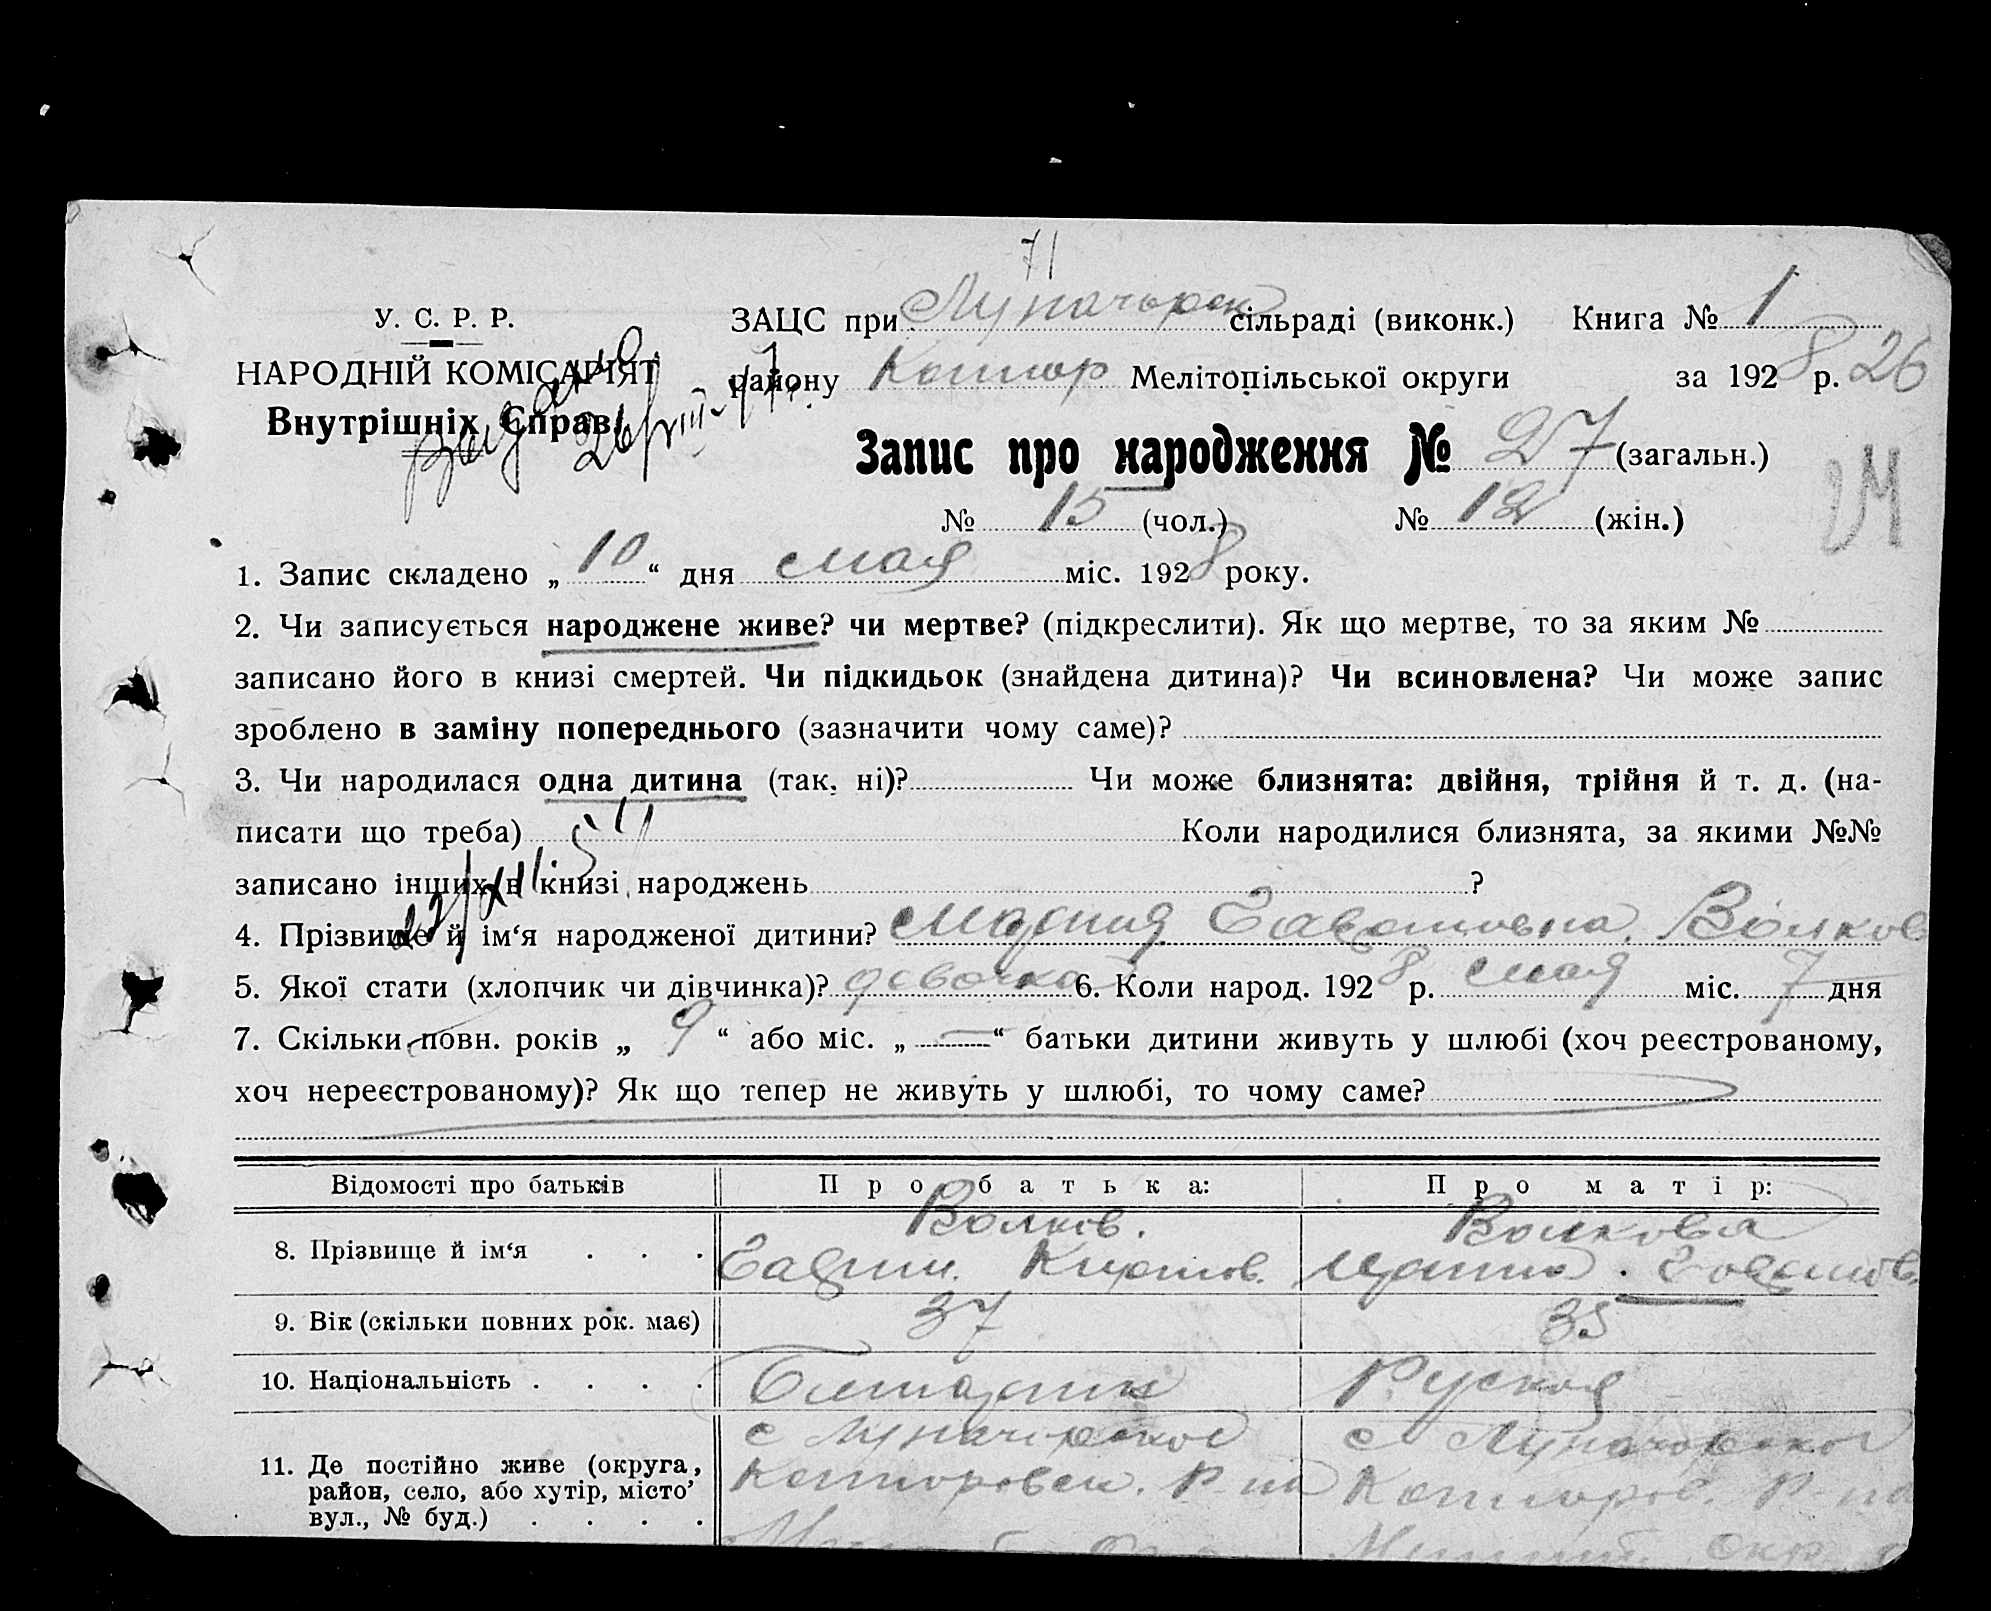 71
У. С. Р. Р.
ЗАЦС при Луначарск сільраді (виконк.) Книга № 1
НАРОДНІЙ КОМІСАРІЯТ
району Коштор Мелітопільської округи за 1928 р. 26
Внутрішніх Справ
Запис про народження № 27 (загальн.)
№ 15 (чол.) № 12 (жін.)
1. Запис складено „ 10 “ дня мая міс. 1928 року.
2. Чи записується народжене живе? чи мертве? (підкреслити). Як що мертве, то за яким №
записано його в книзі смертей. Чи підкидьок (знайдена дитина)? Чи всиновлена? Чи може запис
зроблено в заміну попереднього (зазначити чому саме)?
3. Чи народилася одна дитина (так, ні)? Чи може близнята: двійня, трійня й т. д. (на-
писати що треба) Коли народилися близнята, за якими №№
записано інших в книзі народжень ?
4. Прізвище й ім‘я народженої дитини? Мария Гавриловна Волков
5. Якої стати (хлопчик чи дівчинка)? девочка 6. Коли народ. 1928 р. мая міс. 7 дня
7. Скільки повн. років „ 9 “ або міс. „ — “ батьки дитини живуть у шлюбі (хоч реєстрованому,
хоч нереєстрованому)? Як що тепер не живуть у шлюбі, то чому саме?
Відомості про батьків Про батька: Про матір:
Волков. Волкова
8. Прізвище й ім‘я . . . Гаврил.
9. Вік (скільки повних рок. має) 37 35
10. Національність . . . . Руская
с Луначарское с Луначарское
11. Де постійно живе (округа,
район, село, або хутір, місто,
вул., № буд.) . . . .
Р-на Р-на
Окр